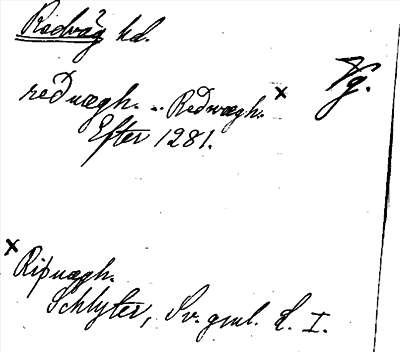 Redväg hd.
Vg.
reðuægh. .. Reðwægh. x
Efter 1281.
x Riþuægh.
Schlyter, Sv. gml. L. I.